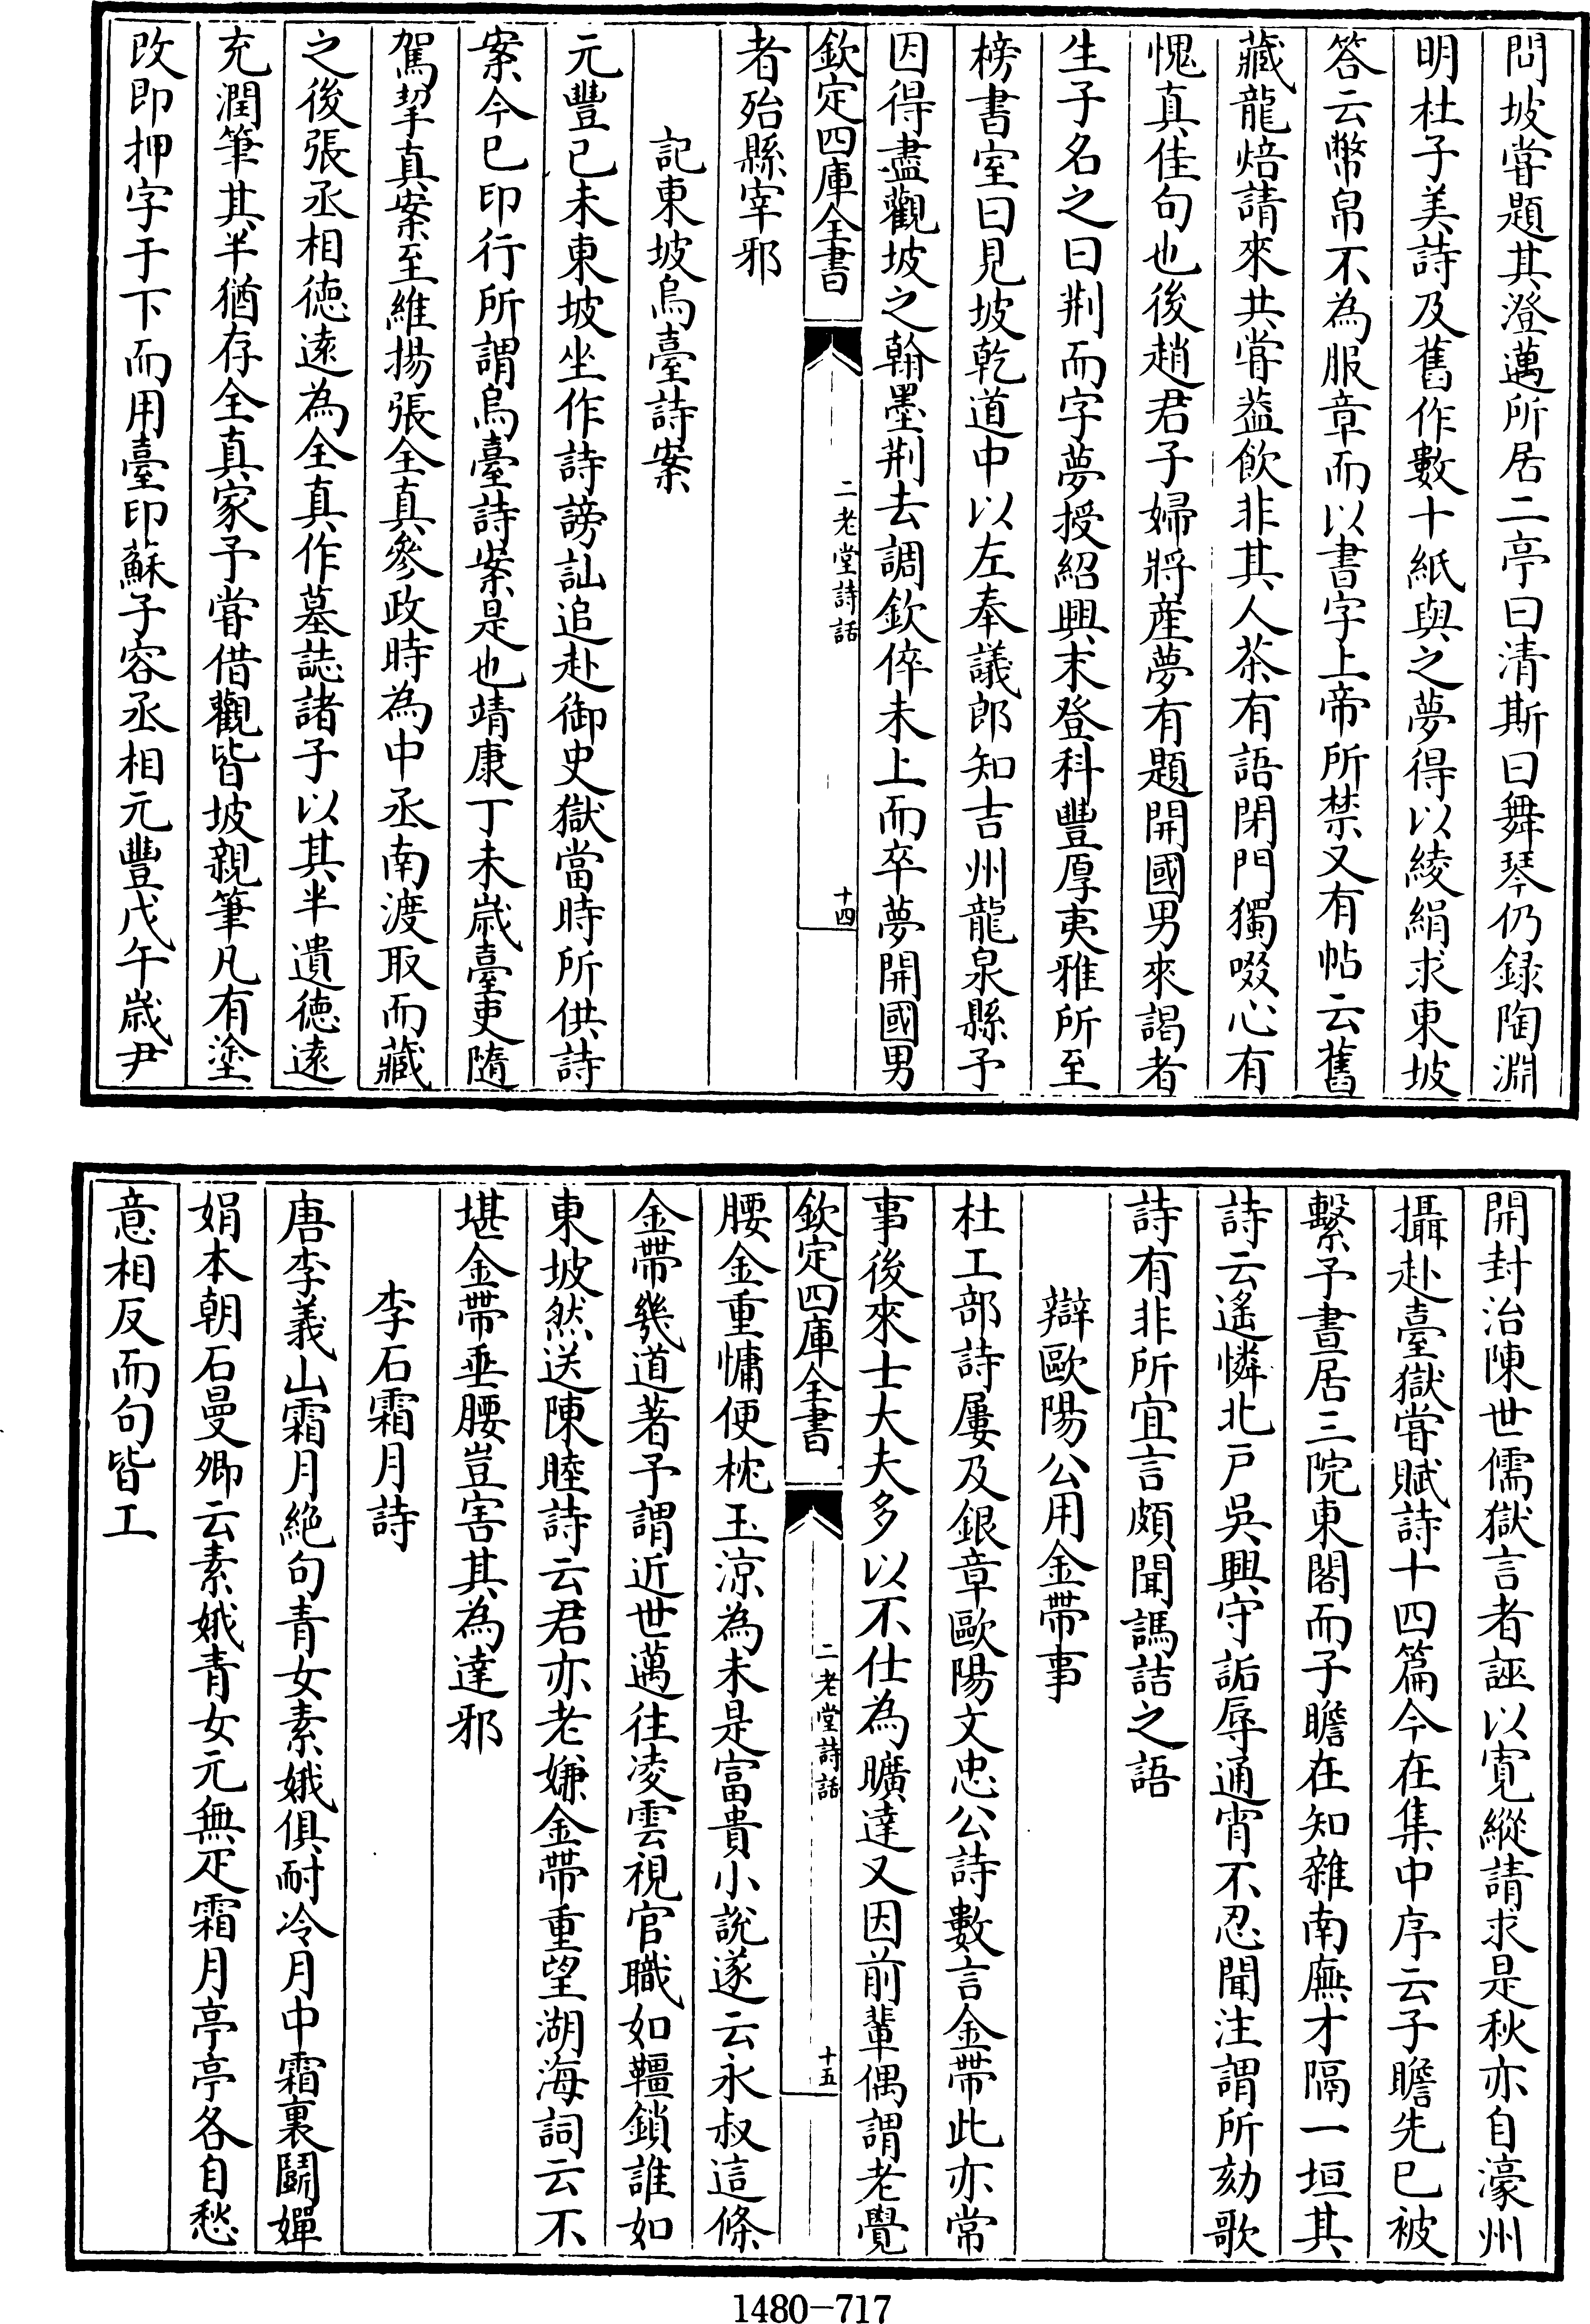 問坡嘗題其澄邁所居二亭曰清斯曰舞琴仍録陶淵
明杜子美詩及舊作數十紙與之夢得以綾絹求東坡
答云幣帛不為服章而以書字上帝所禁又有帖云舊
藏龍焙請來共嘗葢飲非其人茶有語閉門獨啜心有
愧真佳句也後趙君子婦將産夢有題開國男來謁者
生子名之曰荆而字夢授紹興末登科豐厚夷雅所至
榜書室曰見坡乾道中以左奉議郎知吉州龍泉縣予
因得盡觀坡之翰墨荆去調欽倅未上而卒夢開國男
欽定四庫全書
二老堂詩話
十四
者殆縣宰邪
記東坡烏臺詩案
元豐己未東坡坐作詩謗訕追赴御史獄當時所供詩
案今已印行所謂烏臺詩案是也靖康丁未歲臺吏隨
駕挈真案至維揚張全真參政時為中丞南渡取而藏
之後張丞相徳逺為全真作墓誌諸子以其半遺徳逺
充潤筆其半猶存全真家予嘗借觀皆坡親筆凡有塗
改即押字于下而用臺印蘇子容丞相元豐戊午歲尹
開封治陳世儒獄言者誣以寛縱請求是秋亦自濠州
攝赴臺獄嘗賦詩十四篇今在集中序云子瞻先已被
繫予晝居三院東閣而子瞻在知雜南廡才隔一垣其
詩云遙憐北戸吳興守詬辱通宵不忍聞注謂所劾歌
詩有非所宜言頗聞譌詰之語
辯歐陽公用金帶事
杜工部詩屢及銀章歐陽文忠公詩數言金帶此亦常
事後來士大夫多以不仕為曠達又因前輩偶謂老覺
欽定四庫全書
二老堂詩話
十五
腰金重慵便枕玉凉為未是富貴小說遂云永叔這條
金帶幾道著予謂近世邁往凌雲視官職如韁鎖誰如
東坡然送陳睦詩云君亦老嫌金帶重望湖海詞云不
堪金帶垂腰豈害其為達邪
李石霜月詩
唐李義山霜月絶句青女素娥俱耐冷月中霜裏鬭嬋
娟本朝石曼卿云素娥青女元無疋霜月亭亭各自愁
意相反而句皆工
1480-717